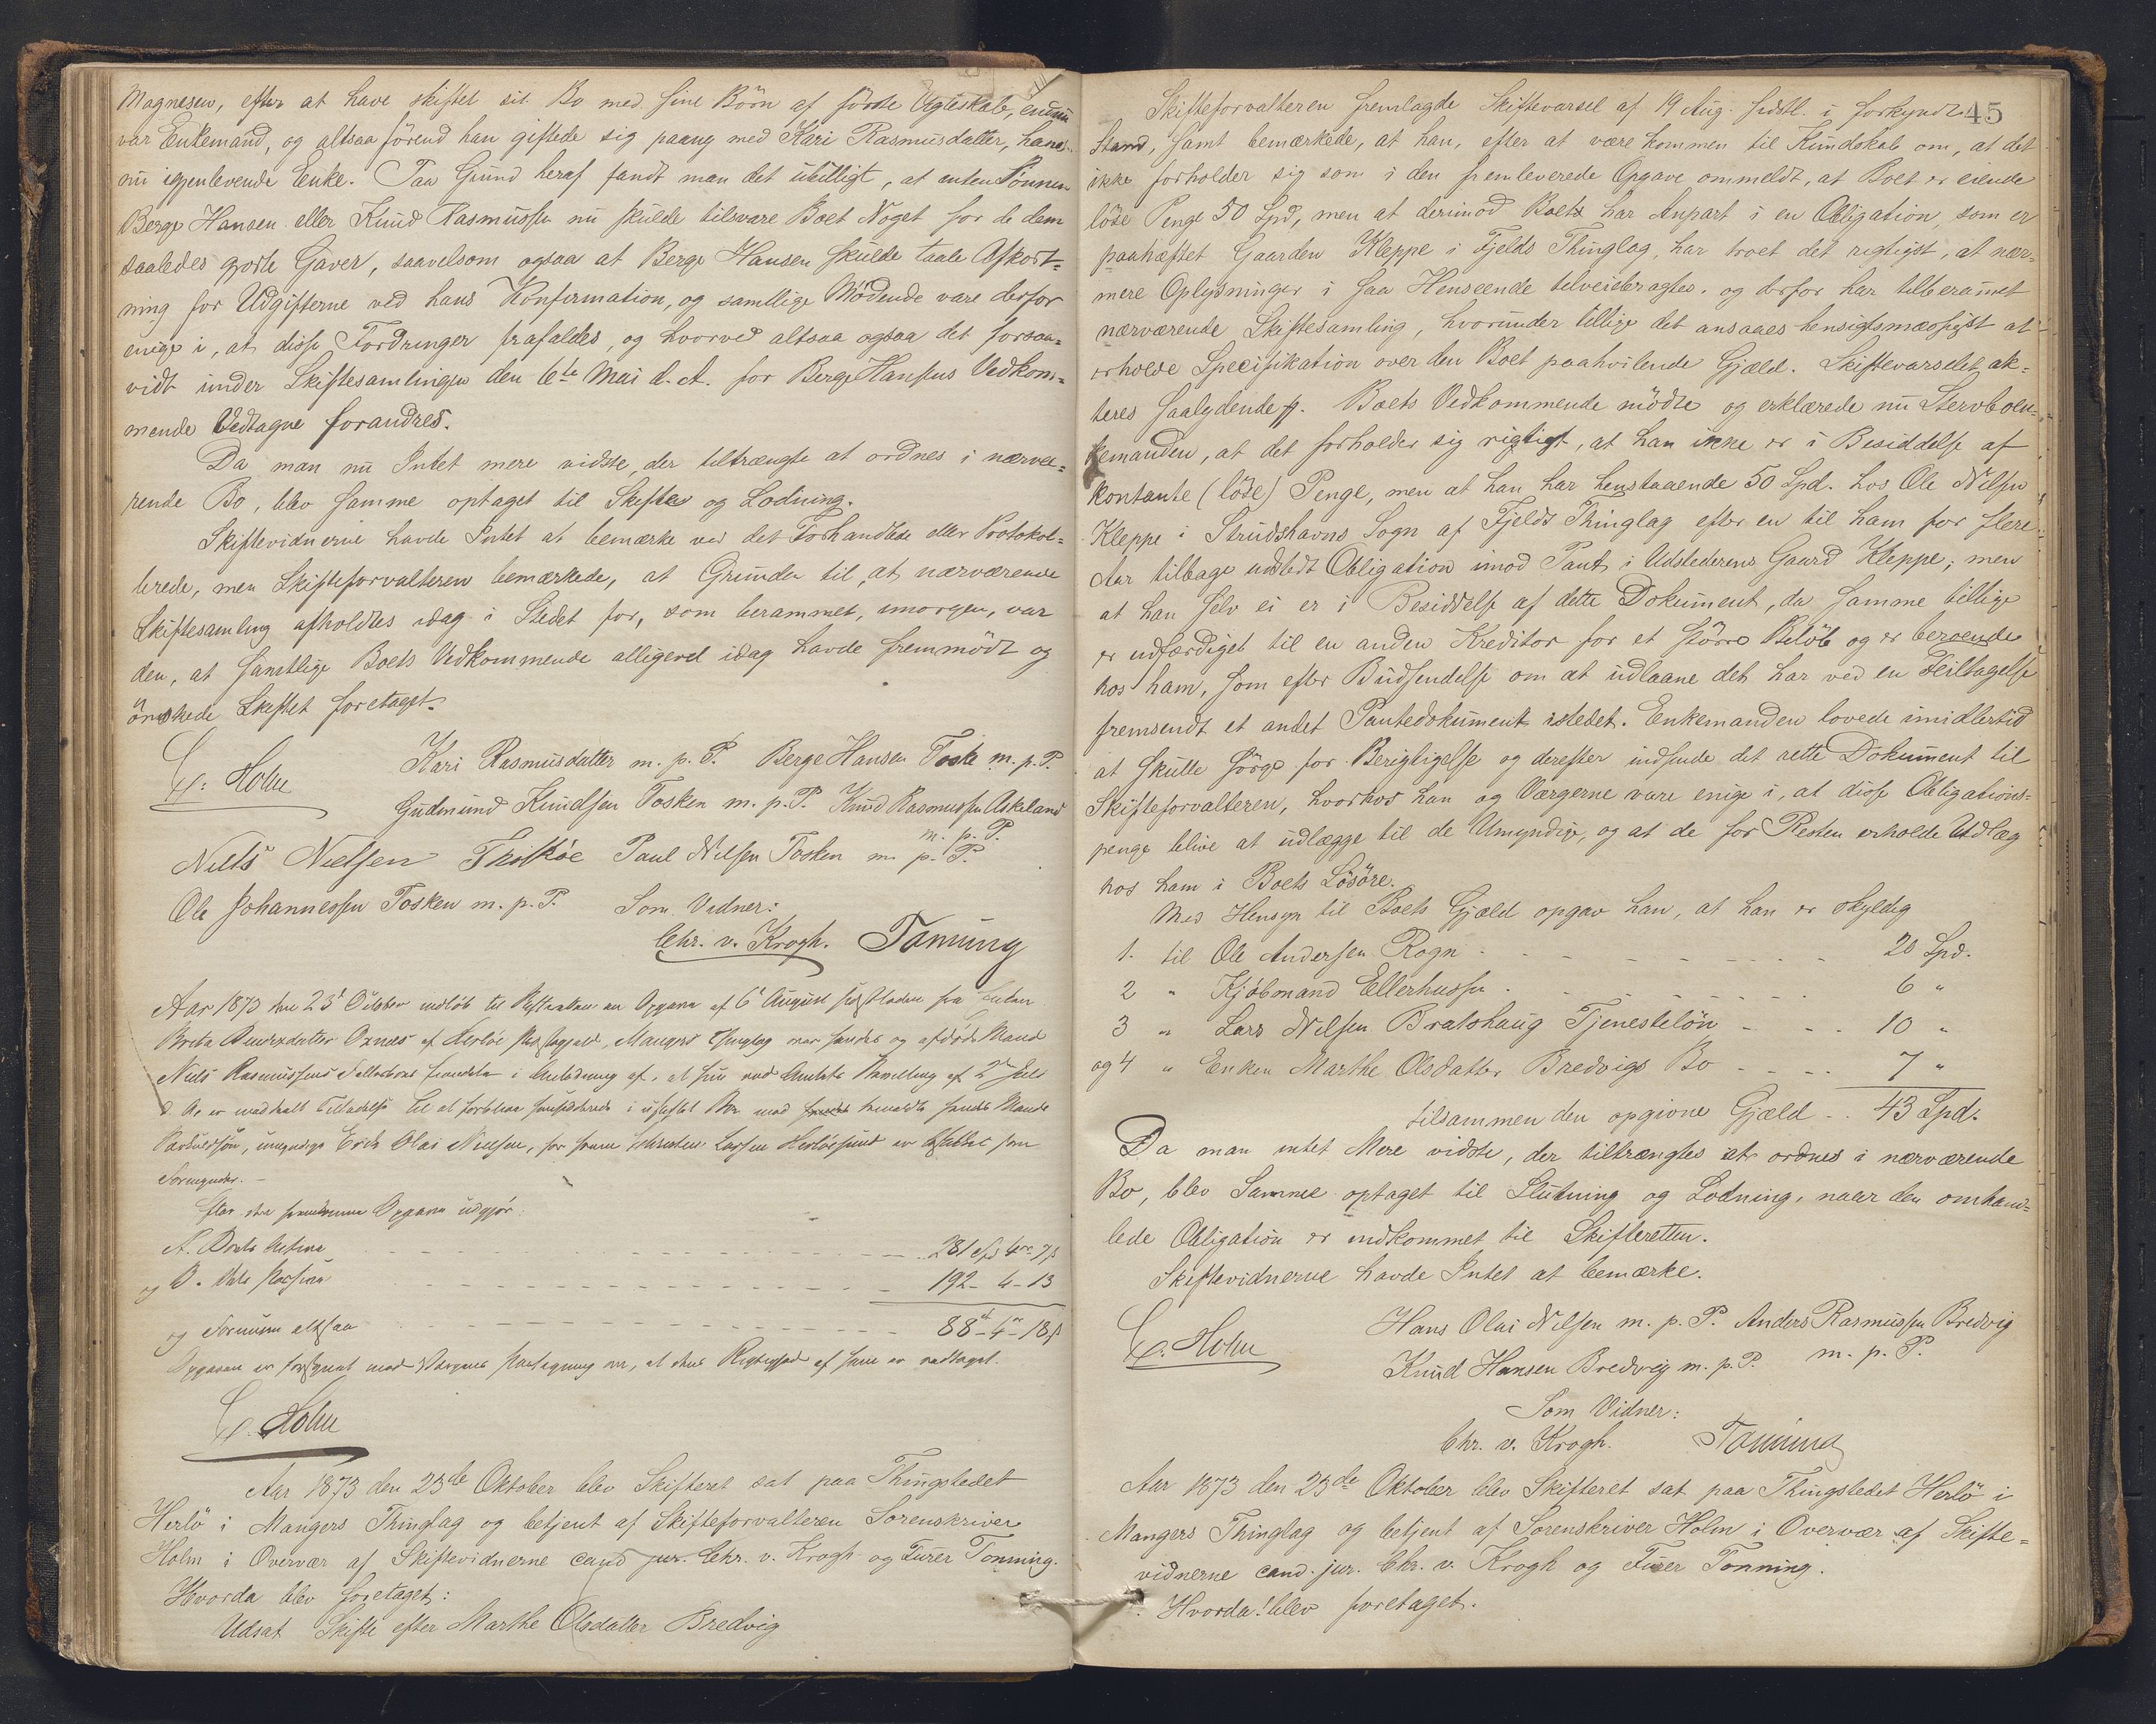 Magnesen, efter at have skiftet sit Bo med sine Börn af förste Egteskab, endnu
var Enkemand, og altsaa förend han giftede sig paany med Kari Rasmusdatter, hans
nu igjenlevende Enke. Paa Grund heraf fandt man det ubilligt, at enten Sönnen
Berge Hansen eller Knud Rasmussen nu skulde tilsvare Boet Noget for de dem
saaledes gjorte Gaver, saavelsom ogsaa at Berge Hansen skulde taale Afkort-
ning for Udgifterne ved hans Konfirmation, og samtlige Mödende vare derfor
enige i, at disse Fordringer frafaldes og hvorved altsaa ogsaa det forsaa-
vidt under Skiftesamlingen den 6te Mai d. A. for Berge Hansens Vedkom-
mende Vedtagne forandres.
Da man nu Intet mere vidste, der tiltrængte at ordnes i nærvæ-
rende Bo, blev samme optaget til Skifte og Lodning.
Skiftevidnerne havde Intet at bemærke ved det Forhandlede eller Protokol-
lerede, men Skifteforvalteren bemærkede, at Grunden til, at nærværende
Skiftesamling afholdtes idag i Stedet for, som berammet, imorgen, var
den, at samtlige Boets Vedkommende alligevel idag havde fremmödt og
önskede Skiftet foretaget.
C. Holm
Kari Rasmusdatter m. p. P. Berge Hansen Toske m. p. P.
Gudmund Knudsen Tosken m. p. P. Knud Rasmussen Askeland
m. p. P.
Nils Nielsen Paul Nilsen Tosken m. p. P.
Ole Johannessen Tosken m. p. P. Som Vidner:
Chr. v. Krogh. Tonning
Aar 1873 den 23d Oktober indløb til Skifteretten en Opgave af 6te August sidstleden fra Enken
Brita Oxnæs af Herløe Præstegjeld, Mangers Thinglag over hendes og afdøde Mand
Niels Rasmussens Fællesboes i Anledning af, at hun ved Amtets Bevilling af 2den Juli
d. A. er meddelt Tilladelse til at forblive hensiddende i uskiftet Bo med hendes Mands
Særkuldssøn, umyndige Erik Olai Nielsen, for hvem Larsen er som
Formynder.
Efter den Opgave udgjør:
A. Boets Activa 281 spd 4 7s
og B. dets Passiva 192 - 4 - 13
og Formuen altsaa 88 - 4 - 18s
Opgaven er med Paategning om, at dens Rigtighed af ham er vedtaget.
C. Holm
Aar 1873 den 23de Oktober blev Skifteret sat paa Thingstedet
Herlö i Mangers Thinglag og betjent af Skifteforvalteren Sorenskriver
Holm i Overvær af Skiftevidnerne cand. jur. Chr. v. Krogh og Furer Tonning.
Hvorda blev foretaget:
Udsat Skifte efter Marthe Olsdatter Bredvig
45
Skifteforvalteren fremlagde Skiftevarsel af 19 Aug. sidstl. i forkyndt
Stand, samt bemærkede, at han, efter at være kommen til Kundskab om, at det
ikke forholder sig som i den fremleverede Opgave ommeldt, at Boet er eiende
löse Penge 50 Spd, men at derimod Boets har Anpart i en Obligation, som er
paahæftet Gaarden Kleppe i Fjelds Thinglag, har troet det rigtigst, at nær-
mere Oplysninger i saa Henseende tilveiebragtes, og derfor har tilberammet
nærværende Skiftesamling, hvorunder tillige det ansaaes hensigtsmæssigst at
erholde Specifikation over den Boet paahvilende Gjæld. Skiftevarselet ak-
teres saalydende #. Boets Vedkommende mödte og erklærede nu Stervboen-
kemanden, at det forholder sig rigtigt, at han ikke er i Besiddelse af
kontante (löse) Penge, men at han har henstaaende 50 Spd. hos Ole Nilsen
Kleppe i Strudshavns Sogn af Fjelds Thinglag efter en til ham for flere
Aar tilbage udstedt Obligation imod Pant i Udstederens Gaard Kleppe; men
at han selv ei er i Besiddelse af dette Dokument, da samme tillige
er udfærdiget til en anden Kreditor for et större Belöb og er beroende
hos ham, som efter Budsendelse om at udlaane det har ved en Feiltagelse
fremsendt et andet Pantedokument istedet. Enkemanden lovede imidlertid
at skulle sörge for Berigtigelse og derefter indsende det rette Dokument til
Skifteforvalteren, hvorhos han og Værgerne vare enige i, at disse Obligations-
penge blive at udlægge til de Umyndige, og at de for Resten erholde Udlæg
hos ham i Boets Lösöre.
Med Hensyn til Boets Gjæld opgav han, at han er skyldig
1. til Ole Andersen Rogn 20 Spd.
2 " Kjöbmand Ellerhusen 6 "
3 " Lars Nilsen Bratshaug Tjenestelön 10 "
og 4 " Enken Marthe Olsdatter Bredvigs Bo 7 "
tilsammen den opgivne Gjæld 43 Spd.
Da man intet Mere vidste, der tiltrængtes at ordnes i nærværende
Bo, blev Samme optaget til Slutning og Lodning, naar den omhand-
lede Obligation er indkommet til Skifteretten.
Skiftevidnerne havde Intet at bemærke.
C. Holm
Hans Olai Nilsen m. p. P. Anders Rasmussen Bredvig
m. p. P.
Knud Hansen Bredvig m. p. P.
Som Vidner:
Chr. v. Krogh. Tonning
Aar 1873 den 23de Oktober blev Skifteret sat paa Thingstedet Herlö i
Mangers Thinglag og betjent af Sorenskriver Holm i Overvær af Skifte-
vidnerne cand. jur. Chr. v. Krogh og Furer Tonning.
Hvorda blev foretaget.